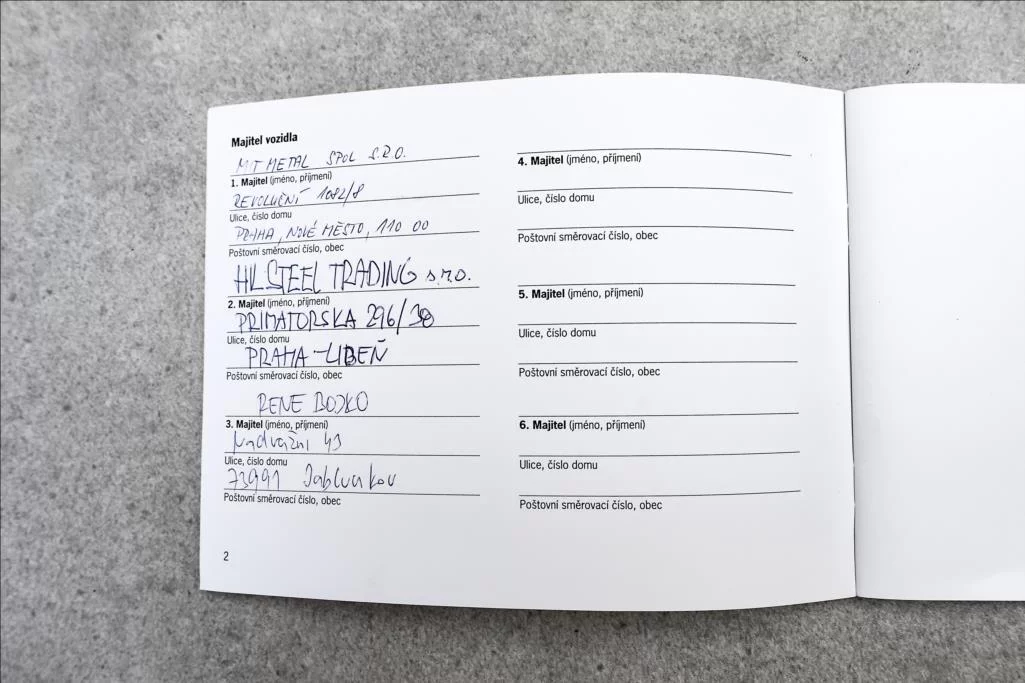 Majitel vozidla
MIT METAL SPOL S.R.O.
1. Majitel (jméno, příjmení)
REVOLUČNÍ 1082/8
Ulice, číslo domu
PRAHA, NOVÉ MĚSTO, 110 00
Poštovní směrovací číslo, obec
HL STEEL TRADING s.r.o.
2. Majitel (jméno, příjmení)
PRIMATORSKA 296/38
Ulice, číslo domu
PRAHA-LIBEŇ
Poštovní směrovací číslo, obec
RENE BOJKO
3. Majitel (jméno, příjmení)
43
Ulice, číslo domu
73991 Jablunkov
Poštovní směrovací číslo, obec
2
4. Majitel (jméno, příjmení)
Ulice, číslo domu
Poštovní směrovací číslo, obec
5. Majitel (jméno, příjmení)
Ulice, číslo domu
Poštovní směrovací číslo, obec
6. Majitel (jméno, příjmení)
Ulice, číslo domu
Poštovní směrovací číslo, obec